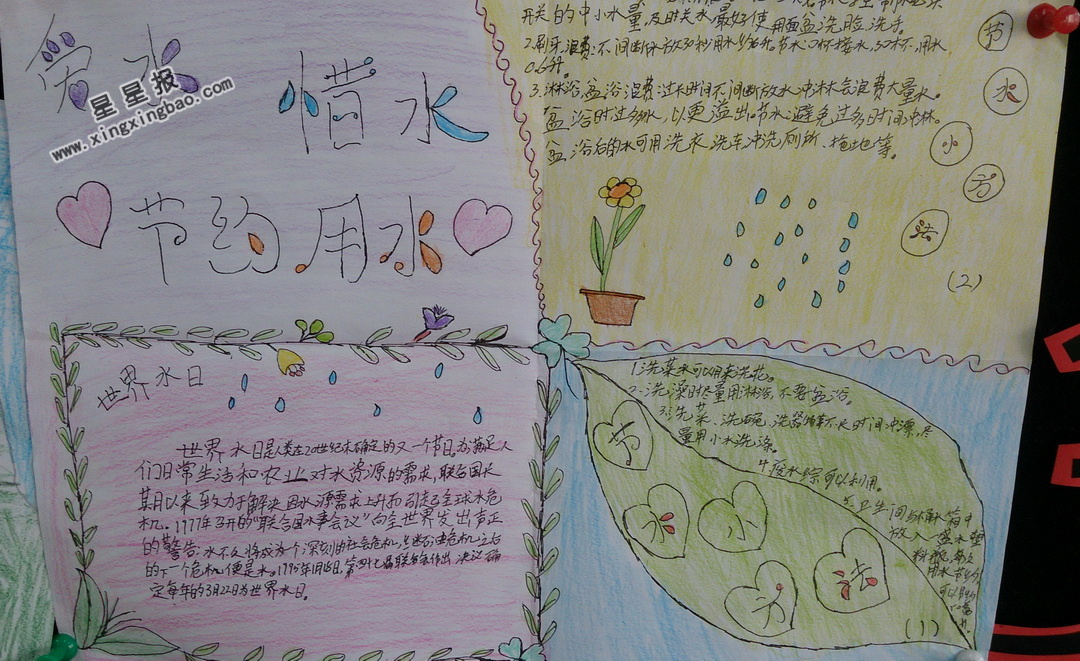 爱水
惜水
节约用水
星星报
www.xingxingbao.com
世界水日
世界水日是人类在20世纪末确定的又一个节日。为满足人
们日常生活和农业对水资源的需求,联合国长
期以来致力于解决因水源需求上升而引起的全球水危
机。1977年召开的"联合国水事会议"向全世界发出严正
的警告:水不久将成为一个深刻的社会危机,
的下一个危机便是水。
定每年的3月22日为世界水日。
开关的中小水量,及时关水,最好使用面盆洗脸、洗手。
2.刷牙浪费:不间断放水30秒,用水约6升。节水:口杯接水,3口杯,用水
0.6升。
3.淋浴、盆浴浪费:过长时间不间断放水冲淋会浪费大量水。
盆浴时过多放水,以更溢出。节水:避免过多时间冲淋。
盆浴后的水可用洗衣、洗车、冲洗厕所、拖地等。
节
水
小
方
法
(2)
1.洗菜水可以用来浇花。
2.洗澡时尽量用淋浴,不要盆浴。
3.洗菜、洗碗、洗器皿等不长时间冲漂,尽
量用小水洗涤。
4.废水综可以利用。
节
水
小
方
法
(1)